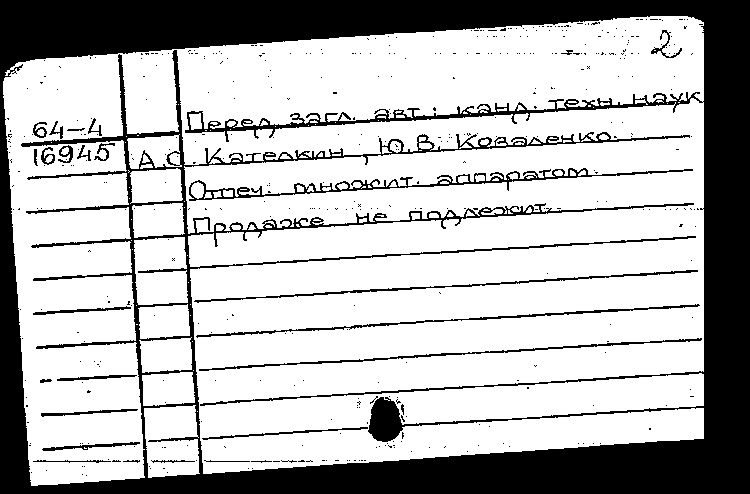 2
64-4
16945
Перед загл. авт.: канд. техн. наук
А.С. Кателкин, Ю.В. Коваленко.
Отпеч. множит. аппаратом.
Продаже не подлежит.